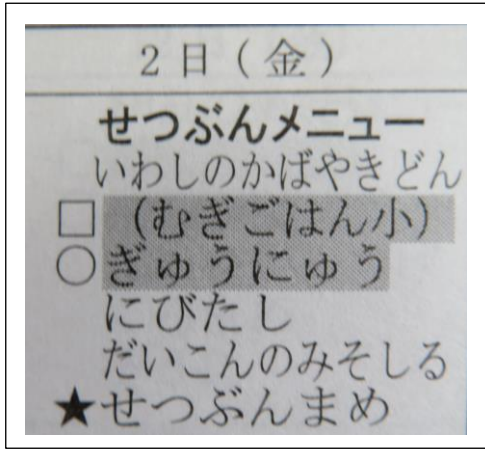 2日(金)
せつぶんメニュー
いわしのかばやきどん
□ (むぎごはん小)
○ぎゅうにゅう
にびたし
だいこんのみそしる
★せつぶんまめ